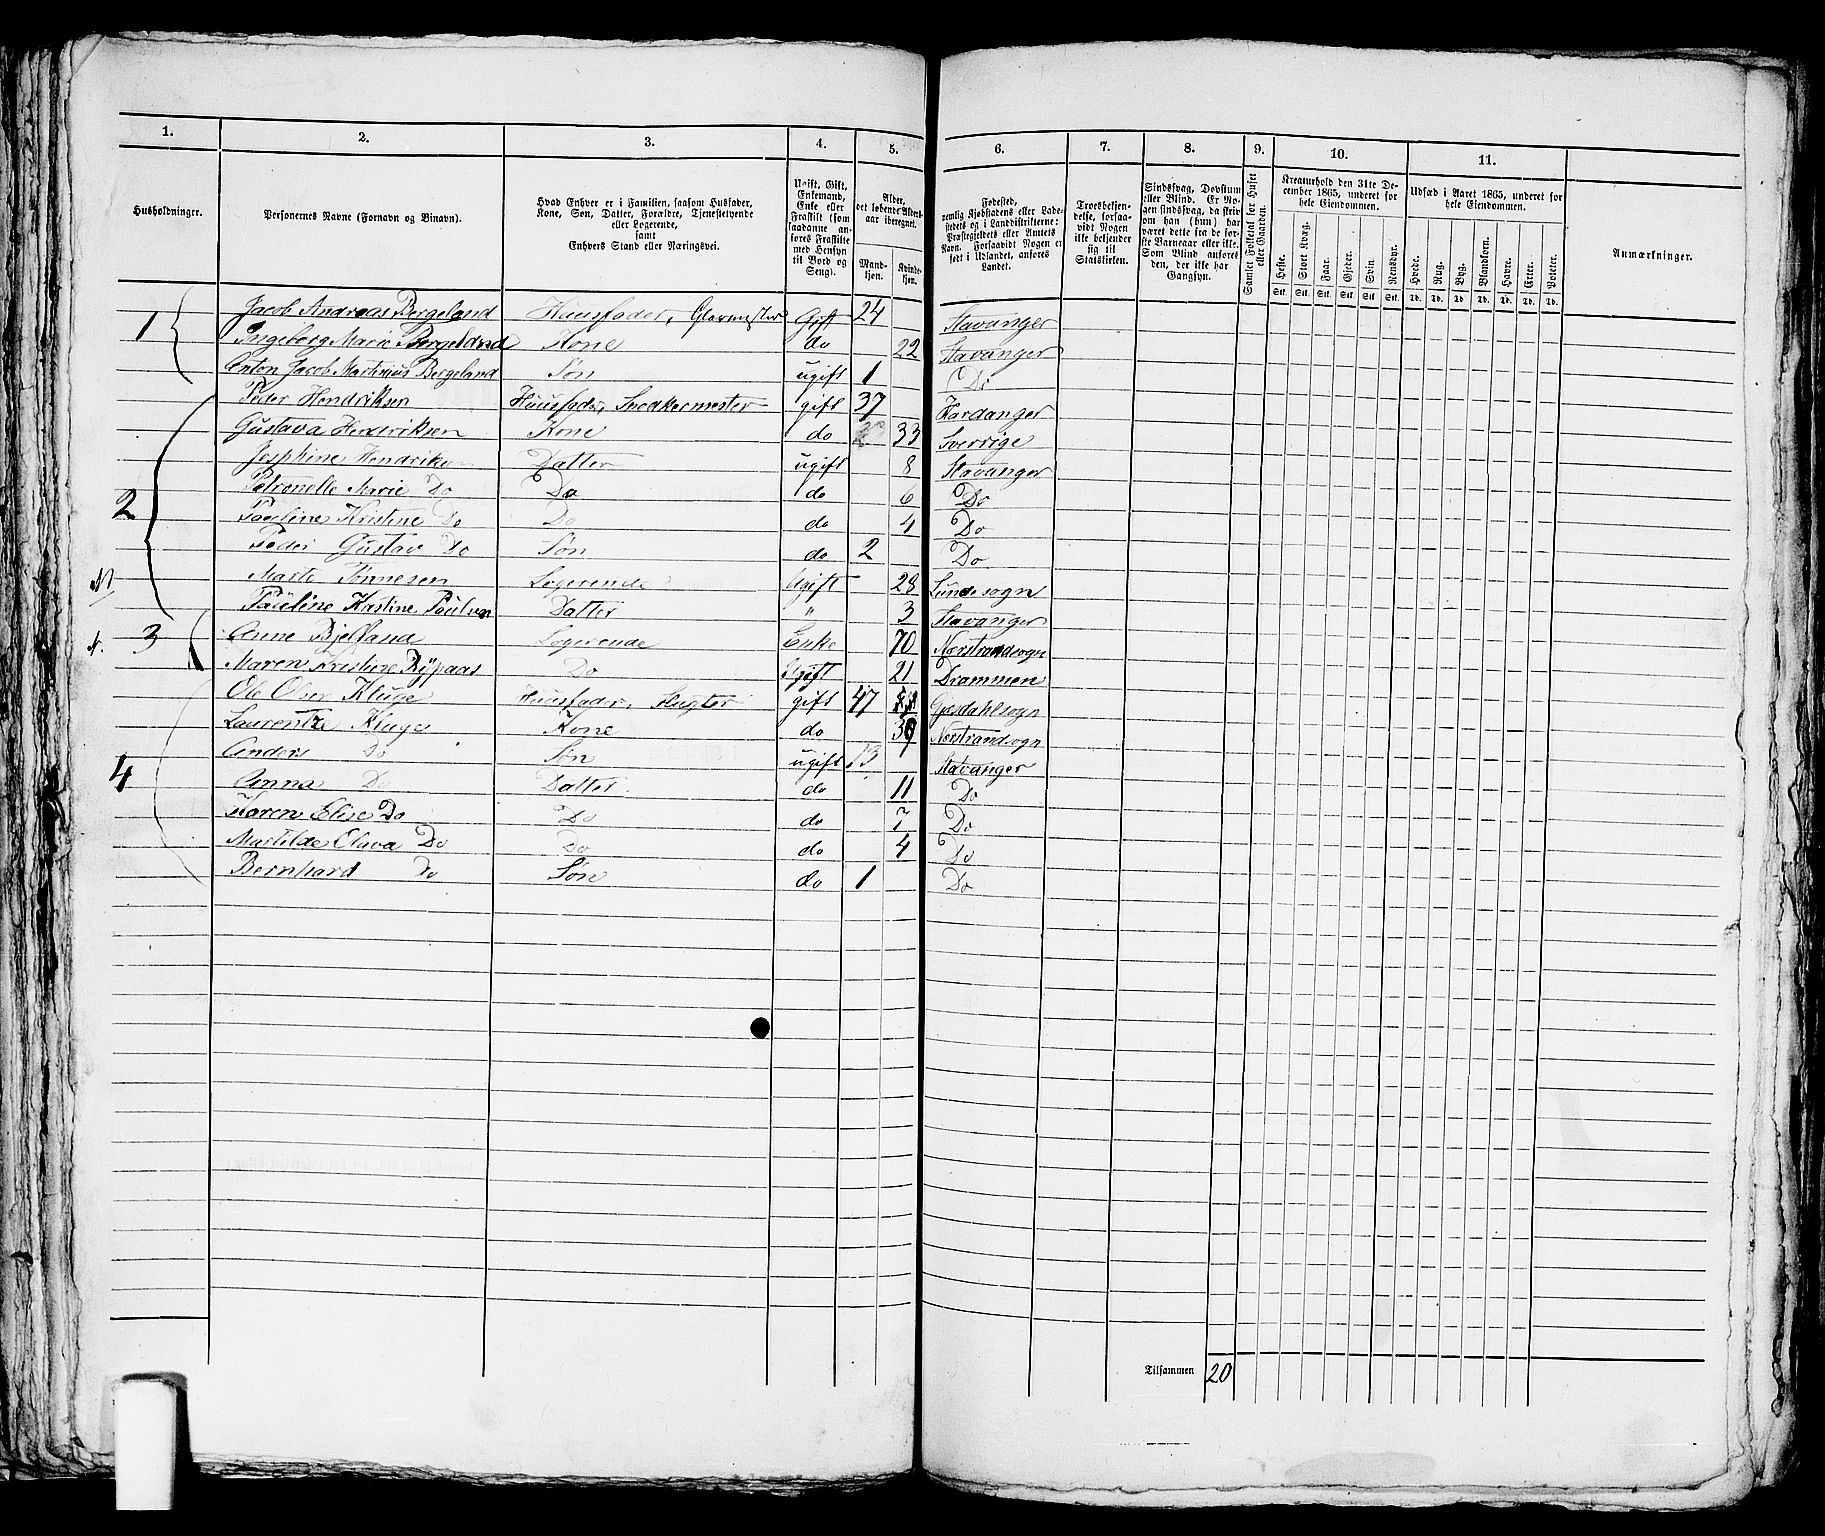 1. 2. 3. 4. 5. 6. 7. 8. 9. 10. 11.
Husholdninger.
Personernes Navne (Fornavn og Binavn).
Hvad Enhver er i Familien, saasom Husfader,
Kone, Søn, Datter, Forældre, Tjenestydende
eller Logerende,
samt
Enhvers Stand eller Næringsvei.
Ugift, Gift,
Enkemand,
Enke eller
Fraskilt (som
saadanne an-
føres Fraskilte
med Hensyn
til Bord og
Seng).
Alder,
det løbende Alders-
aar iberegnet.
Mand-
kjøn.
Kvinde-
kjøn.
Fødested,
nemlig Kjøbstadens eller Lade-
stedets og i Landdistrikterne:
Præstegjeldets eller Amtets
Navn. Forsaavidt Nogen er
født i Udlandet, anføres
Landet.
Troesbekjen-
delse, forsaa-
vidt Nogen
ikke bekjender
sig til
Statskirken.
Sindssvag, Døvstum
eller Blind. Er No-
gen sindssvag, da skriv
om han (hun) har
været dette fra de før-
ste Barneaar eller ikke.
Som Blind anføres
den, der ikke har
Gangsyn.
Samlet Folketal for Huset
eller Gaarden.
Kreaturhold den 31te De-
cember 1865, underet for
hele Eiendommen.
Heste. Stort Kvæg. Faar. Gjeder. Svin. Rensdyr.
Stk. Stk. Stk. Stk. Stk. Stk.
Udsæd i Aaret 1865, underet for
hele Eiendommen.
Hvede. Rug. Byg. Blandkorn. Havre. Erter. Poteter.
Td. Td. Td. Td. Td. Td. Td.
Anmærkninger.
1 Jacob Andreas Bergeland Huusfader, Glarmester Gift 24 Stavanger
Ingeborg Marie Bergeland Kone do 22 Stavanger
Anton Jacob Martinius Bergeland Søn ugift 1 Do
2 Peder Hendriksen Huusfader, Snedkermester gift 37 Hardanger
Gustava Hendriksen Kone do 33 Sverrige
Josphine Hendriksen Datter ugift 8 Stavanger
Petronelle Marie Do Do do 6 Do
Pauline Kristine Do Do do 4 Do
Peder Gustav Do Søn do 2 Do
Marte Tønnesen Logerende Ugift 28 Lundesogn
Pauline Kristine Paulsen Datter " 3 Stavanger
3 Anne Bjelland Logerende Enke 70 Nerstrandsogn
Maren Kristine Do Ugift 21 Drammen
4 Ole Olsen Kluge Huusfader, gift 47 Gjesdahlsogn
Laurentze Kluge Kone do 39 Nerstrandsogn
Anders Do Søn ugift 13 Stavanger
Anna Do Datter do 11 Do
Karen Elise Do Do do 7 Do
Martilde Olava Do Do do 4 Do
Bernhard Do Søn do 1 Do
Tilsammen 20